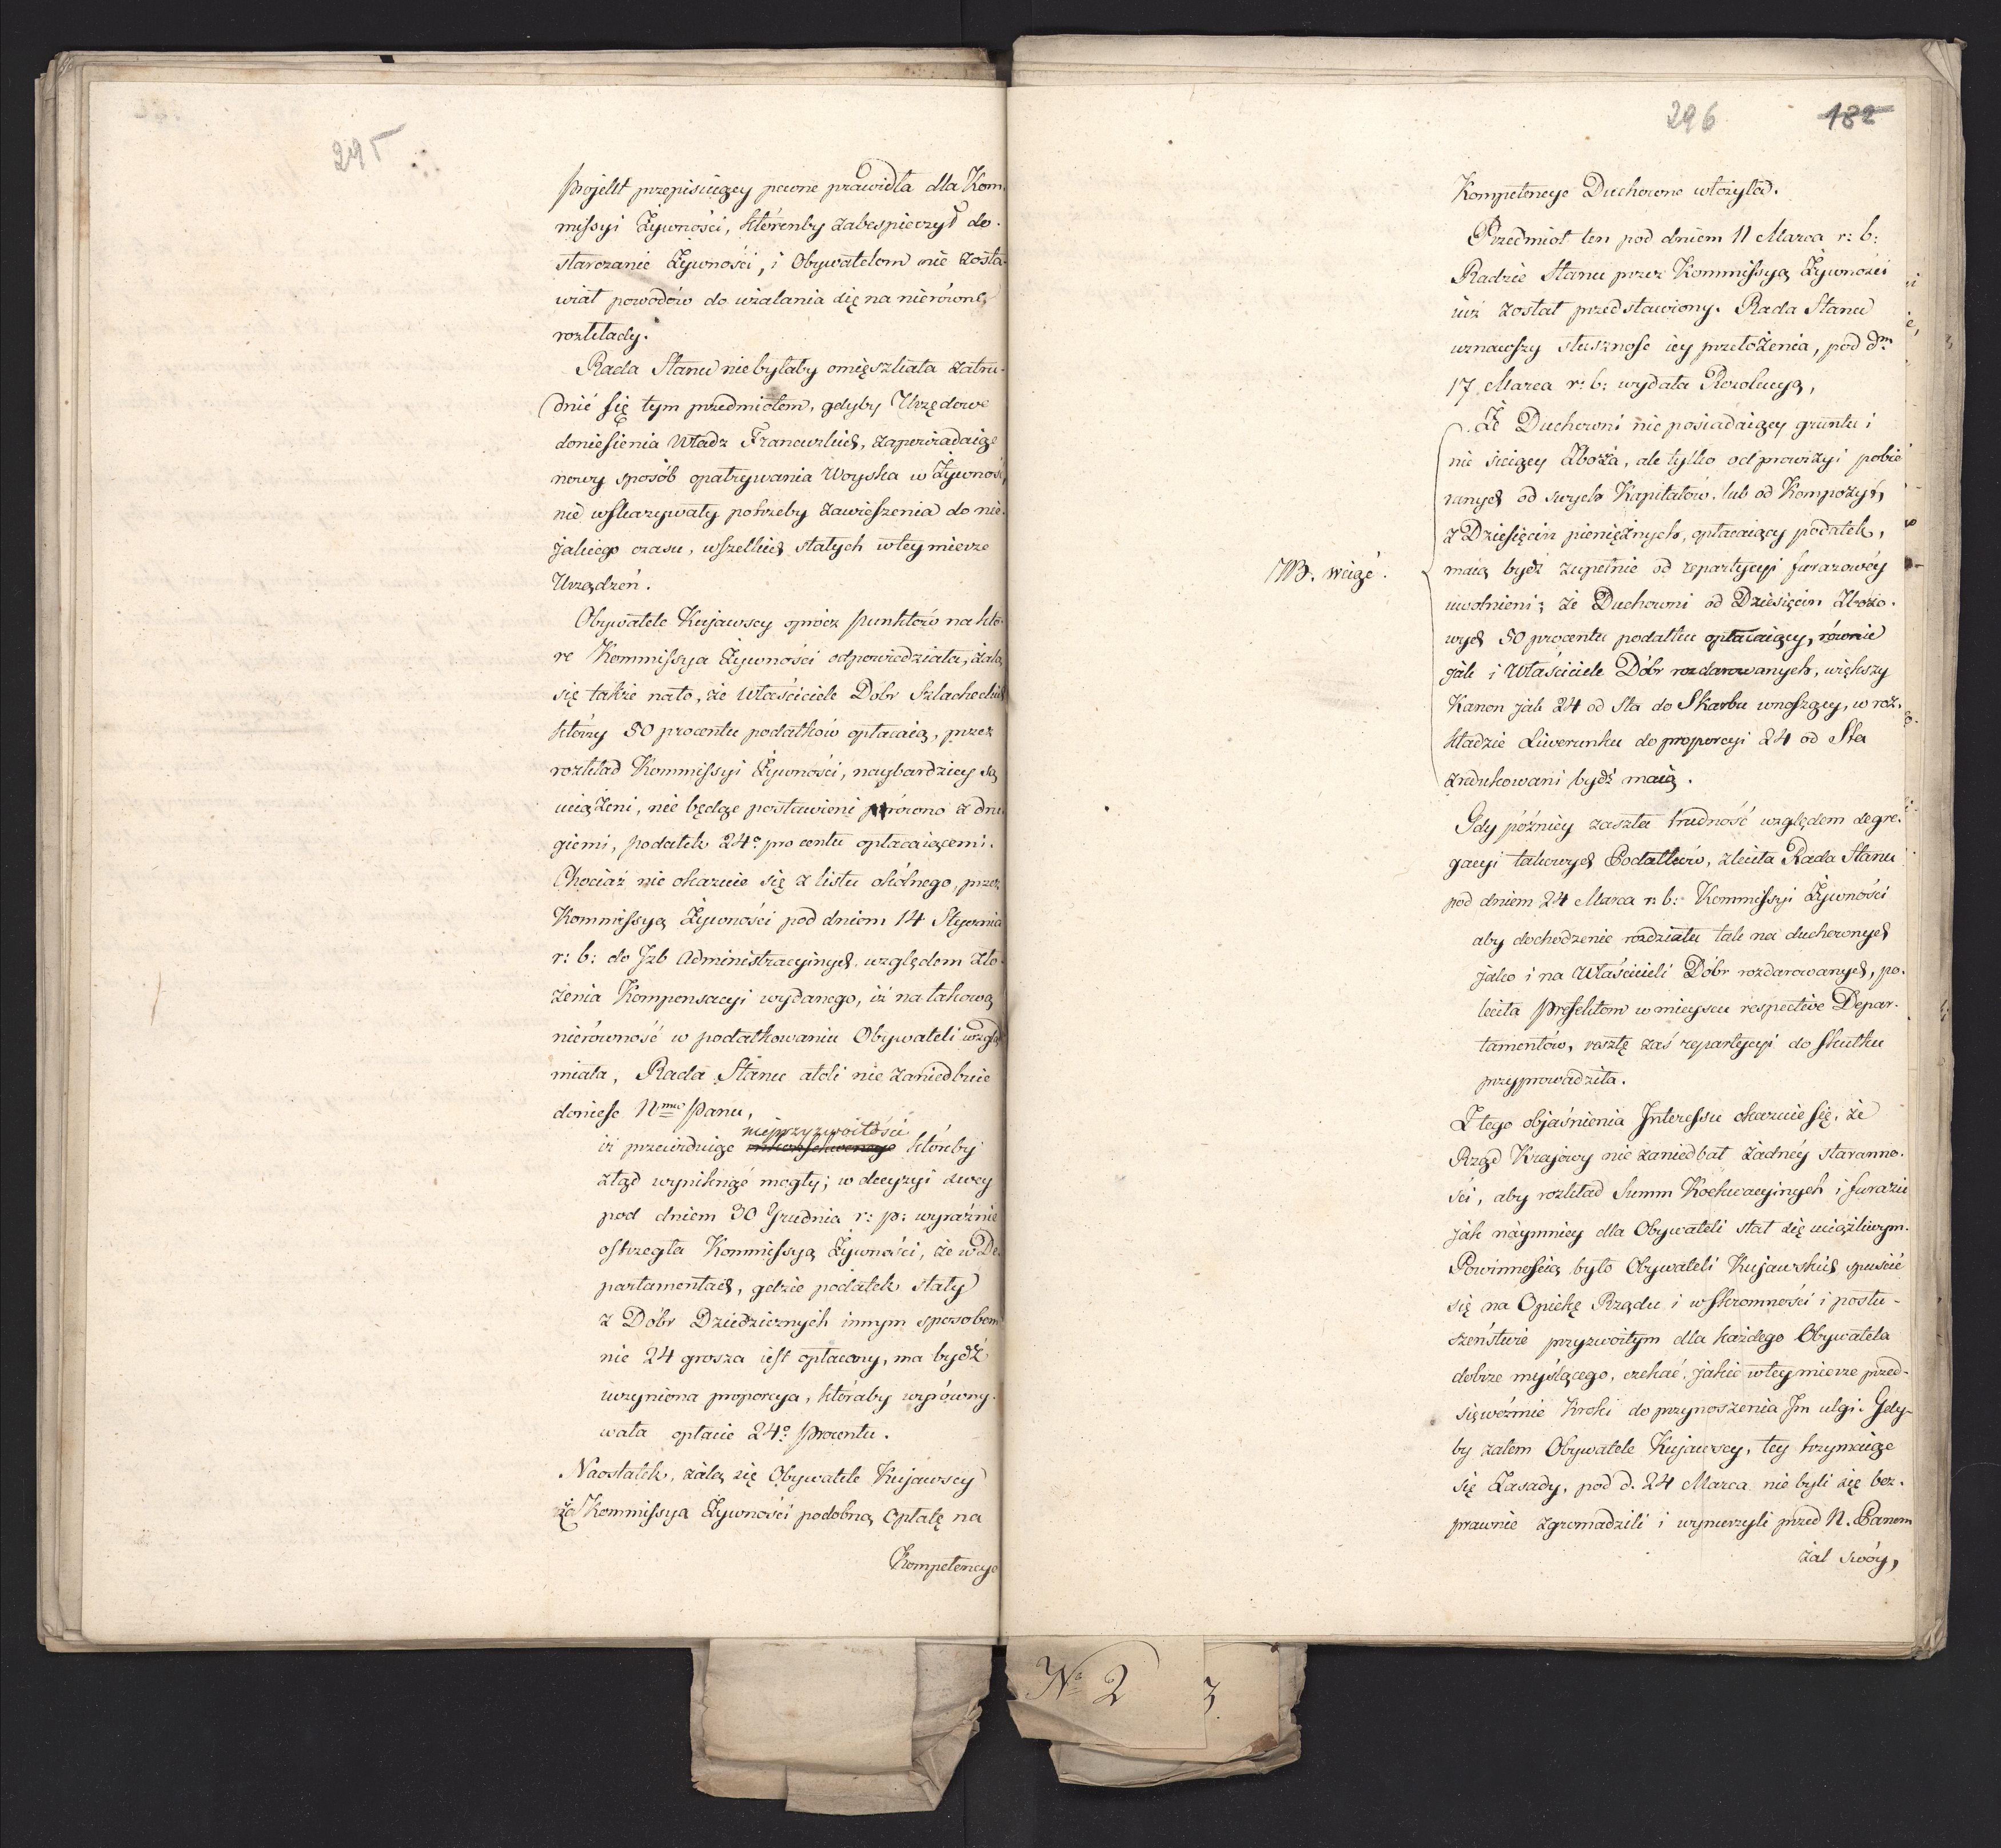 295
projekt przepisuiący pewne prawidła dla Kom-
missyi Żywności, którenby zabespieczył do-
starczanie Żywności, i Obywatelom nie zosta-
wiał powodów do użalania się na nierówne
rozkłady.
Rada Stanu nie byłaby omięszkała zatru-
dnić się tym przedmiotem, gdyby Urzędowe
doniesienia Władz Francuzkich, zapowiadaiące
nowy sposób opatrywania Woyska w Żywność,
nie wskazywały potrzeby zawieszenia do nie-
jakiego czasu, wszelkich stałych w tey mierze
Urządzeń.
Obywatele Kujawscy oprócz punktów na któ-
re Kommissya Żywności odpowiedziała, żalą
się także na to, że Właściciele Dobr Szlacheckich
którzy 50 procentu podatków opłacaią, przez
rozkład Kommissyi Żywności, naybardziey są
uciążeni, nie będąc postawieni porówno z dru-
giemi, podatek 24º pro centu opłacaiącemi.
Chociaż nie okazuie się z listu okólnego, przez
Kommissyą Żywności pod dniem 14 Stycznia
r: b: do Jzb Administracyinych, względem zło-
żenia Kompensacyi wydanego, iż na takową
nierówność w podatkowaniu Obywateli wzgląd
miała, Rada Stanu atoli nie zaniedbuie
donieść Nmu Panu,
nieprzyzwoitości
iż przewiduiąc któreby
ztąd wyniknąć mogły; w decyzyi swey
pod dniem 30 Grudnia r: p: wyraźnie
ostrzegła Kommissyą Żywności, że w De-
partamentach, gdzie podatek stały
z Dóbr Dziedzicznych innym sposobem
nie 24 grosza iest opłacany, ma bydź
uczyniona proporcya, któraby wyrówny-
wała opłacie 24º Procentu.
Naostatek, żalą się Obywatele Kujawscy
że Kommissya Żywności podobną Opłatę na
Kompetencye
296 182
Kompetencye Duchowne włożyła.
Przedmiot ten pod dniem 11 Marca r: b:
Radzie Stanu przez Kommissyą Żywności
iuż został przedstawiony. Rada Stanu
uznawszy słuszność iey przełożenia, pod dm
17 Marca r: b: wydała Rezolucyą,
Że Duchowni nie posiadaiący gruntu i
nie sieiący Zboża, ale tylko od prowizyi pobie-
ranych od swych Kapitałów, lub od Kompozyt,
z Dziesięcin pieniężnych, opłacaiący podatek,
NB. wciąć.
maią bydź zupełnie od repartycyi furazowéy
uwolnieni; że Duchowni od Dziesięcin Zbożo-
wych 50 procentu podatku opłacaiący, równie
jak i Właściciele Dóbr rozdarowanych, większy
Kanon jak 24 od Sta do Skarbu wnoszący, w roz-
kładzie Liwerunku do proporcyi 24 od Sta
zredukowani bydź maią.
Gdy późniey zaszła trudność względem segre-
gacyi takowych Podatków, zleciła Rada Stanu
pod dniem 24 Marca r: b: Kommissyi Żywności
aby dochodzenie rozdziału tak na duchownych
jako i na Właścicieli Dóbr rozdarowanych, po-
leciła Prefektom w mieyscu respective Depar-
tamentów, resztę zaś repartycyi do skutku
przyprowadziła.
Z tego objaśnienia Jnteressu okazuie się, że
Rząd Krajowy nie zaniedbał żadnéy staranno-
ści, aby rozkład Summ Koekwacyinych i furazu
jak naymniey dla Obywateli stał się uciążliwym.
Powinnością było Obywateli Kujawskich spuścić
się na Opiekę Rządu, i w skromności i posłu-
szeństwie przyzwoitym dla każdego Obywatela
dobrze myślącego, czekać, jakie w tey mierze przed-
sięweźmie Kroki do przynoszenia Jm ulgi. Gdy-
by zatem Obywatele Kujawscy, tey trzymaiąc
się Zasady, pod d. 24 Marca nie byli się bez-
prawnie zgromadzili i wynurzyli przed N. Panem
żal swóy,
No 2 3.